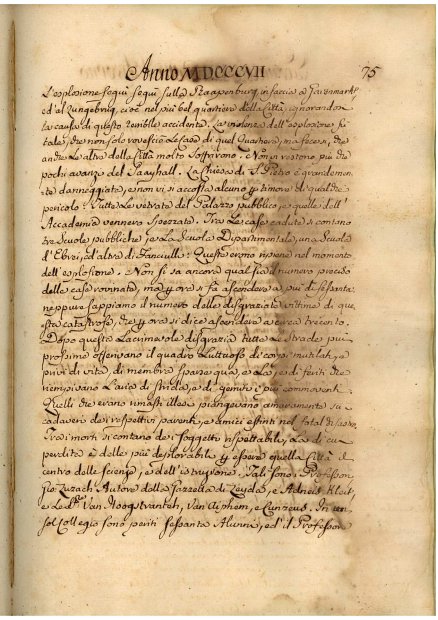 Anno MDCCCVII 75
L'esplosione seguì sulla Staapenburg in faccia a Garenmark,
ed al Zungebrug, cioè nel più bel quartiere della Città, ignorandon
la causa di questo terribile accidente. La violenza dell'esplosione fu
tale, che non solo rovesciò le case di quel Quartiere, ma fece sì, che
anche le altre della Città molto soffrirono. Non vi restono, più che
pochi avanzi del Saayhall. La Chiesa di S. Pietro è grandemen
te danneggiata, e non vi si accosta alcuno p timore di qualche
pericolo. Tutte le vetrate del Palazzo pubblico, e quelle dell'
Accademia vennero spezzate. Tra le case cadute si contano
tre Scuole pubbliche, e la Scuola Dipartimentale, una Scuola
d'Ebrei, ed altra di Fanciulle. Queste erano ripiene nel momento
dell'esplosione. Non si sa ancora qual sia il numero preciso
delle case rovinate, ma p ora si fa ascendere a più di sessanta:
neppure sappiamo il numero delle disgraziate vittime di que
sta catastrofe, che p ora si dice ascendere a circa trecento.
Dopo questa lacrimevole disgrazia tutte le strade più
prossime offerivano il quadro luttuoso di corpi mutilati, e
privi di vita, di membra sparse quà, e là, e di feriti che
riempivano l'aria di strida, e di gemiti i più commoventi.
Quelli che erano rimasti illesi piangevano amaramente su i
cadaveri de' rispettivi parenti, e amici estinti nel fatal disastro.
Tra i morti si contano de' soggetti rispettabili, la di cui
perdita è delle più deplorabile p essere quella Città il
centro delle scienze, e dell'istruzione. Tali sono: Professor
Gio: Luzach Autore della Gazzetta di Leyda, e Adneis Kleit,
e le D. Van Hoogstranten, Van Alphem, e Cunzeus. In un
sol Collegio sono periti sessanta Alunni, ed il Professore